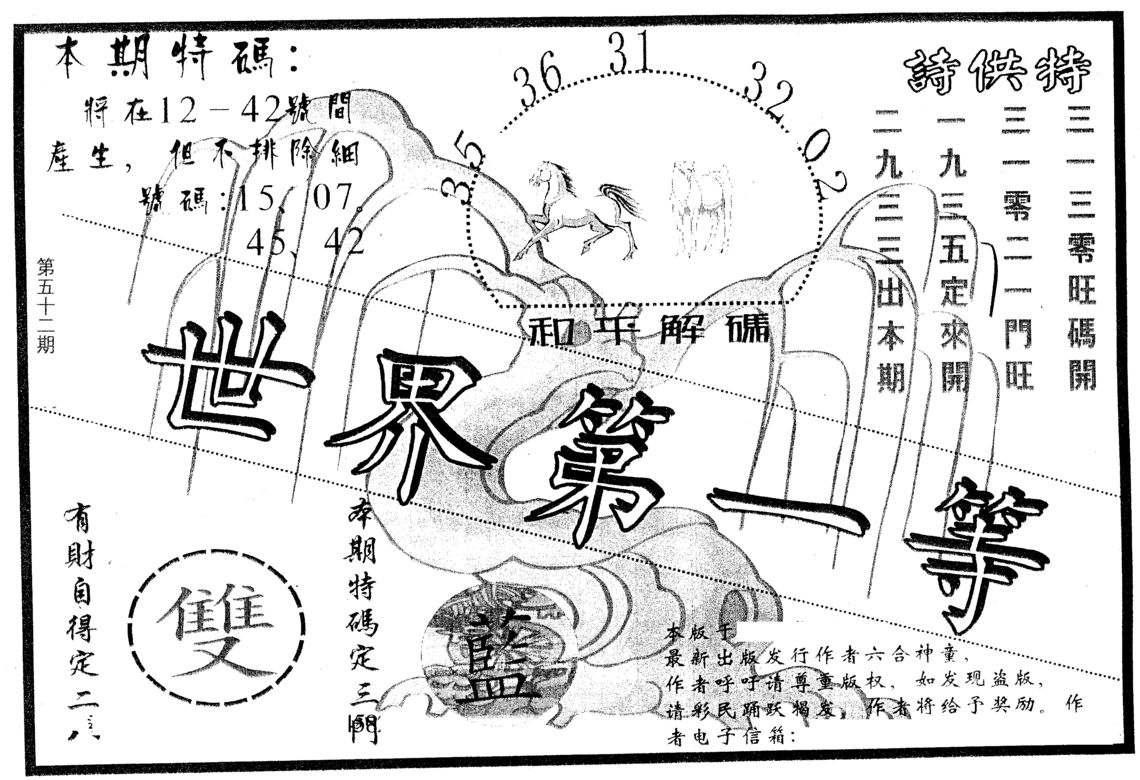 本期特碼：
將在12－42號間
產生，但不排除細
號碼：15、07。
45、42
第五十二期
35
36
31
32
02
和平解碼
特供詩
三一三零旺碼開
三一零二一門旺
一九三五定來開
二九三三出本期
世界第一等
有財自得定二八
雙
本期特碼定三門
藍
本版于
最新出版发行作者六合神童，
作者呼吁请尊重版权，如发现盗版，
请彩民踊跃揭发，作者将给予奖励。作
者电子信箱：